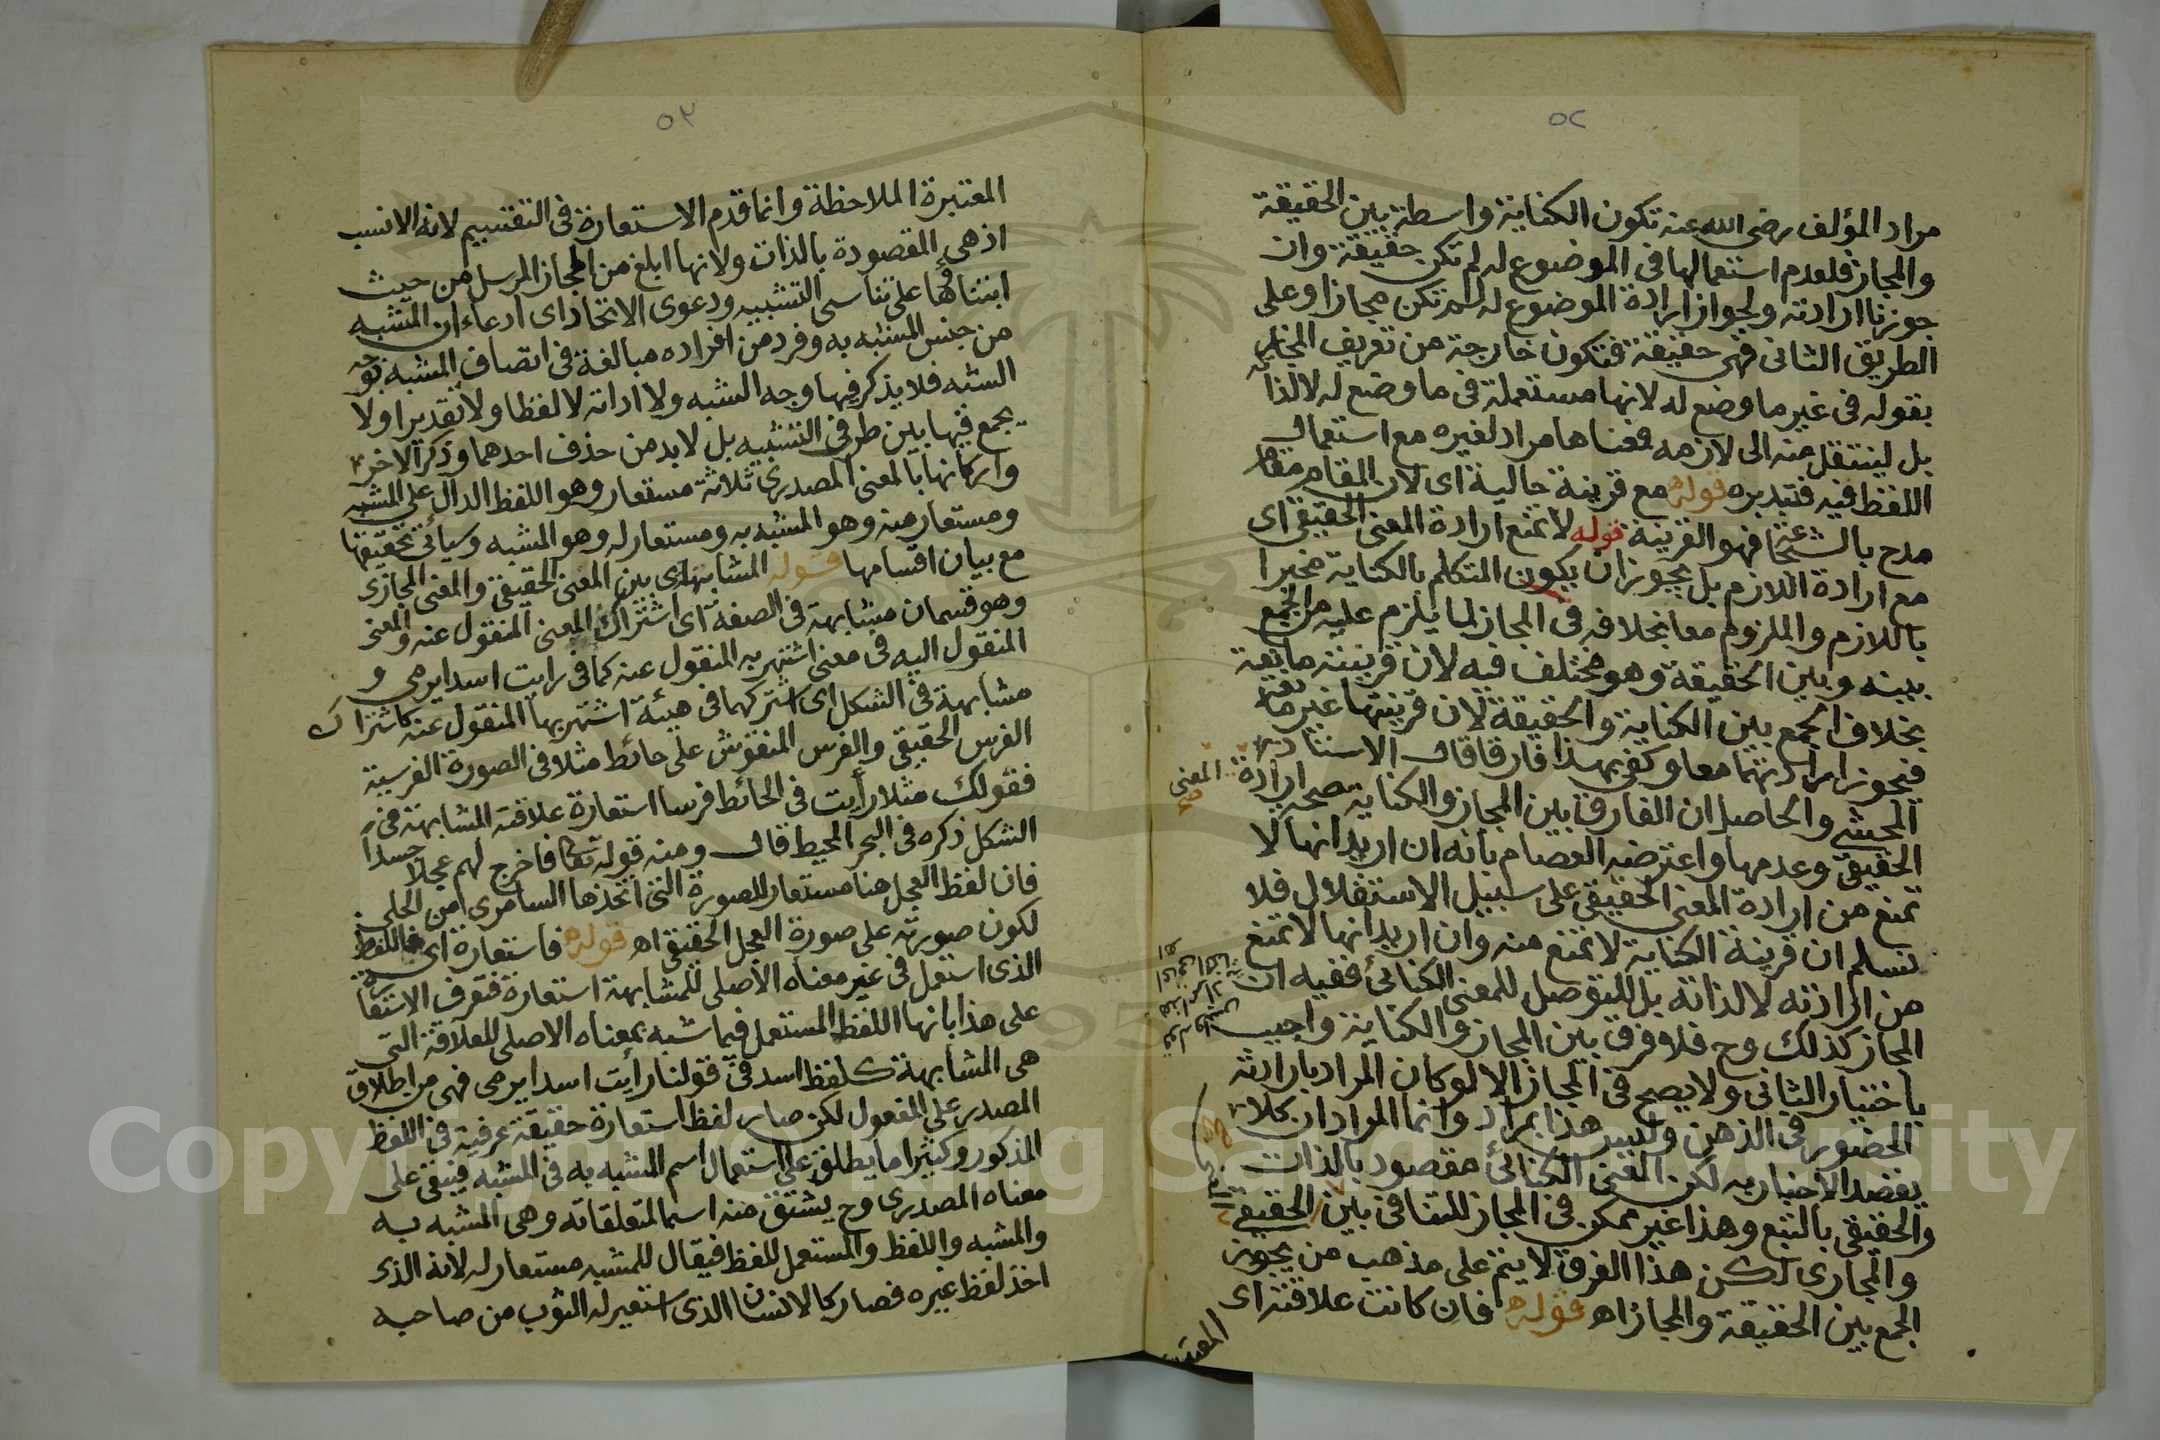 ٥٢
مراد المؤلف رضى الله عنه تكون الكناية واسطة بين الحقيقة
والمجاز فلعدم استعمالها فى الموضوع له لم تكن حقيقة وان
جوزنا ارادته ولجواز ارادة الموضوع له لم تكن مجازا وعلى
الطريق الثانى فهى حقيقة فتكون خارجة من تعريف المجاز
بقوله فى غير ما وضع له لانها مستعملة فى ما وضع له لا لذاته
بل لينتقل منه الى لازمه فمعناها مراد لغيره مع استعمال
اللفظ فيه فتدبره قوله مع قرينة حالية اى لان المقام مقام
مدح بالشجاعة فهو القرينة قوله لا تمنع ارادة المعنى الحقيقى اى
مع ارادة اللازم بل يجوز ان يكون المتكلم بالكناية مخبرا
باللازم والملزوم معا بخلافه فى المجاز لما يلزم عليه من الجمع
بينه وبين الحقيقة وهو مختلف فيه لان قرينته مانعة
بخلاف الجمع بين الكناية والحقيقة لان قرينتها غير مانعة
فيجوز ارادتهما معا وكفى بهذا فارقا قال الاستاد
المحشى والحاصل ان الفارق بين المجاز والكناية صحة ارادة المعنى
الحقيقى وعدمها واعترضه العصام بانه ان اريد انها لا
تمنع من ارادة المعنى الحقيقى على سبيل الاستقلال فلا
نسلم ان قرينة الكناية لا تمنع منه وان اريد انها لا تمنع
من ارادته لا لذاته بل للتوصل للمعنى الكنائى ففيه ان
المجاز كذلك وح فلا فرق بين المجاز والكناية واجيب
باختيار الثانى ولا يصح فى المجاز الا لو كان المراد بارادته
الحضور فى الذهن وليس هذا بمراد وانما المراد ان كلا
يقصد الاخبار به لكن المعنى الكنائى مقصود بالذات
والحقيقى بالتبع وهذا غير ممكن فى المجاز للتنافى بين الحقيقى
والمجازى لكن هذا الفرق لا يتم على مذهب من يجوز
الجمع بين الحقيقة والمجاز اه قوله فان كانت علاقته اى
٥٣
المعتبرة الملاحظة وانما قدم الاستعارة فى التقسيم لانه الانسب
اذ هى المقصودة بالذات ولانها ابلغ من المجاز المرسل من حيث
ابتناؤها على تناسى التشبيه ودعوى الاتحاد اى ادعاء ان المشبه
من جنس المشبه به وفرد من افراده مبالغة فى اتصاف المشبه بوجه
الشبه فلا يذكر فيها وجه الشبه ولا اداته لا لفظا ولا تقديرا ولا
يجمع فيها بين طرفى التشبيه بل لا بد من حذف احدهما وذكر الاخر
واركانها بالمعنى المصدرى ثلاثة مستعار وهو اللفظ الدال على المشبه
ومستعار منه وهو المشبه به ومستعار له وهو المشبه وسيأتى تحقيقها
مع بيان اقسامها قوله المشابهة اى بين المعنى الحقيقى والمعنى المجازى
وهو قسمان مشابهة فى الصفة اى اشتراك المعنى المنقول عنه والمعنى
المنقول اليه فى معنى اشتهر به المنقول عنه كما فى رايت اسدا يرمى و
مشابهة فى الشكل اى اشتراكهما فى هيئة اشتهر بها المنقول عنه كاشتراك
الفرس الحقيقى والفرس المنقوش على حائط مثلا فى الصورة الفرسية
فقولك مثلا رأيت فى الحائط فرسا استعارة علاقته المشابهة فى
الشكل ذكره فى البحر المحيط قال ومنه قوله تعالى فاخرج لهم عجلا جسدا
فان لفظ العجل هنا مستعار للصورة التى اتخذها السامرى من الحلى
لكون صورته على صورة العجل الحقيقى اه قوله فاستعارة اى فاللفظ
الذى استعمل فى غير معناه الأصلى للمشابهة استعارة فتعرف الاستعارة
على هذا بانها اللفظ المستعمل فيما شبه بمعناه الاصلى للعلاقة التى
هى المشابهة كلفظ اسد فى قولنا رأيت اسدا يرمى فهى من اطلاق
المصدر على المفعول لكن صار لفظ استعارة حقيقة عرفية فى اللفظ
المذكور وكثيرا ما يطلق على استعمال اسم المشبه به فى المشبه فيبقى على
معناه المصدرى وح يشتق منه اسما لمتعلقاته وهى المشبه به
والمشبه واللفظ والمستعمل للفظ فيقال للمشبه مستعار له لانه الذى
اخذ لفظ غيره فصار كالانسان الذى استعير له الثوب من صاحبه